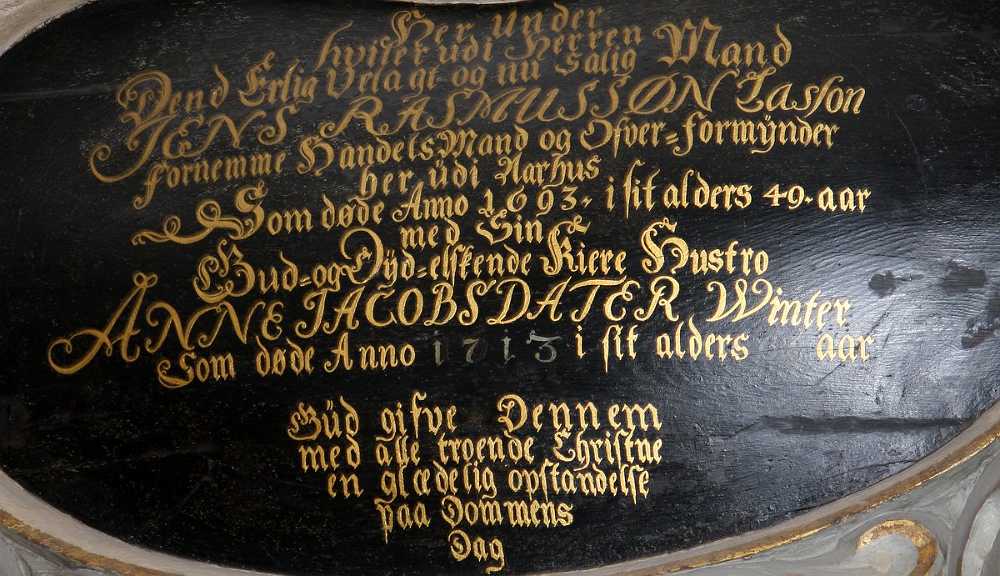 Her Under
hviler udi Herren
Dend Erlig Velagt og nu Salig Mand
JENS RASMUSSØN Lasson
fornemme HandelsMand og Ofver=formÿnder
her udi Aarhus
Som døde Anno 1693. i sit alders 49. aar
med Sin
Gud=og Dÿd=elskende Kiere Hustro
ANNE JACOBSDATER Winter
Som døde Anno 1713 i sit alders aar
Gud gifve Dennem
med alle troende Christne
en glædelig opstandelse
paa Dommens
Dag